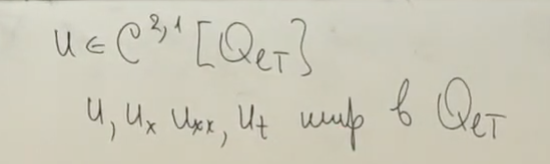 u ∈ C^{2,1} [Q_{eT}}
u, u_x u_{xx}, u_t непр в Q_{eT}